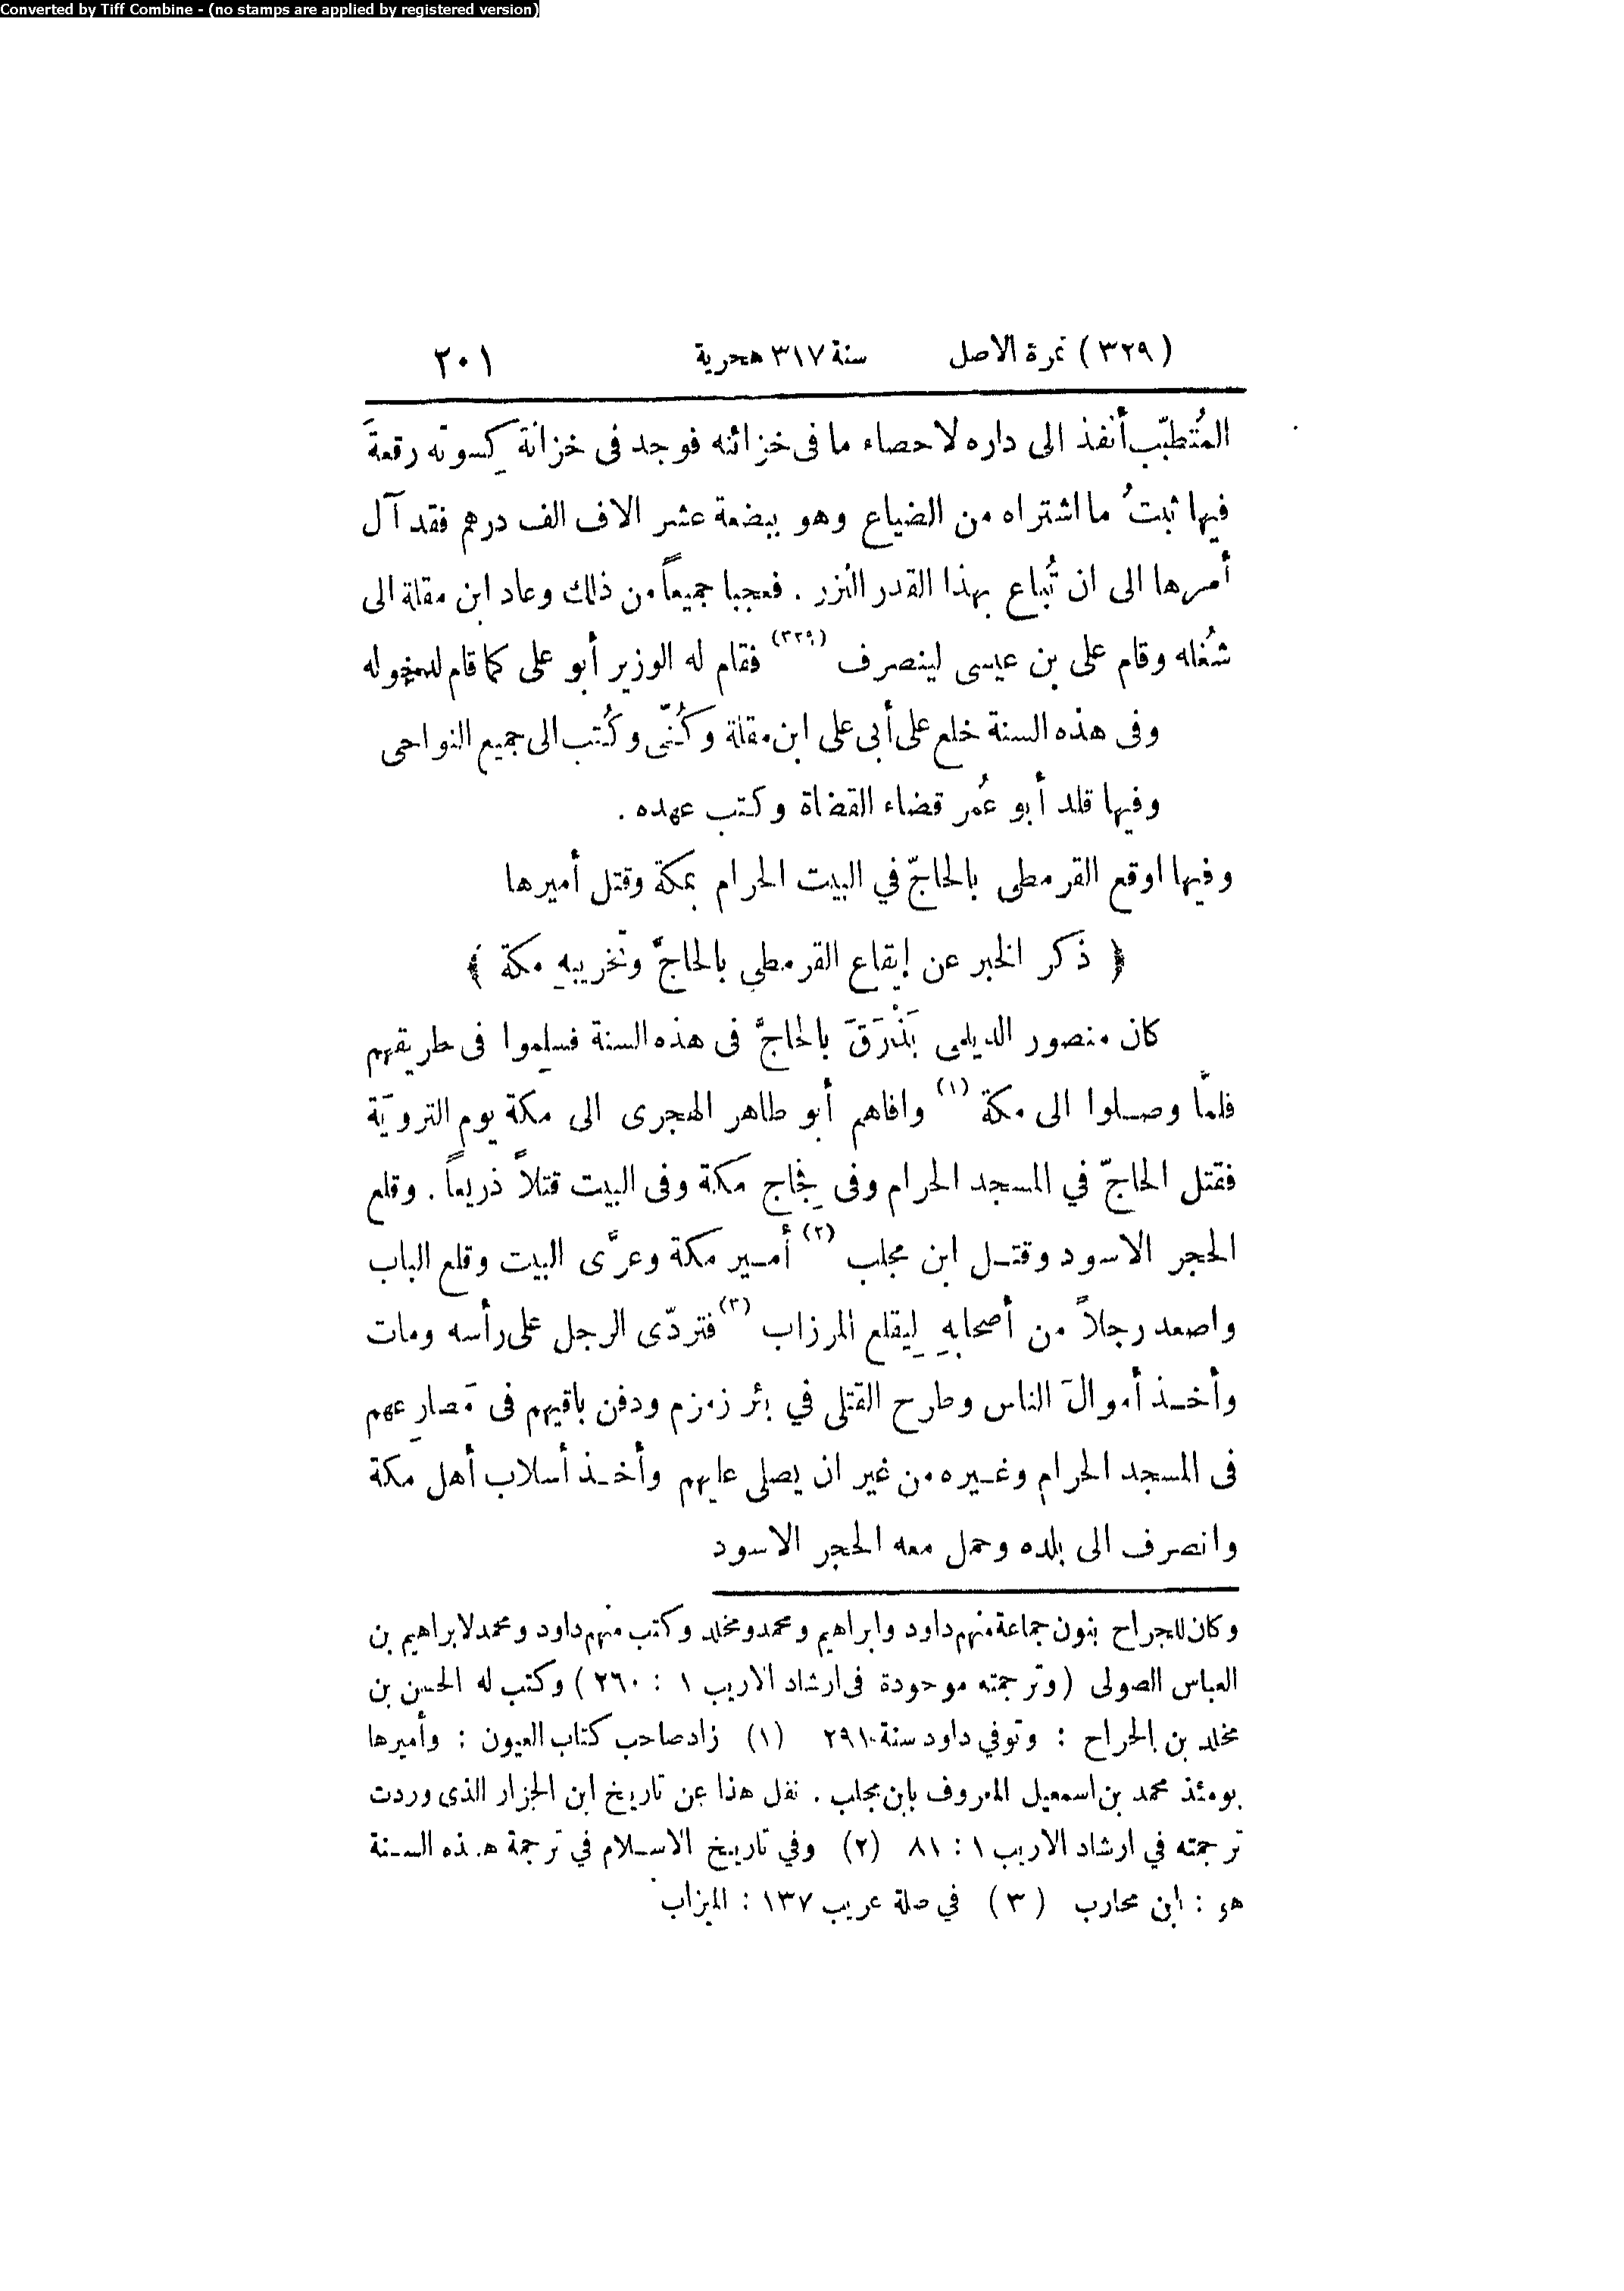 Converted by Tiff Combine - (no stamps are applied by registered version)
(٣٢٩) نمرة الاصل سنة ٣١٧ هجرية ٢٠١
المُتطبّب أنفذ الى داره لاحصاء ما فى خزائنه فوجد فى خزانة كِسوته رقعةً
فيها ثبتُ ما اشتراه من الضياع وهو بضعة عشر الاف الف درهم فقد آل
أمرها الى ان تُباع بهذا القدر النزر . فعجبا جميعاً من ذلك وعاد ابن مقلة الى
شُغله وقام على بن عيسى لينصرف (٣٢٩) فقام له الوزير أبو على كما قام لدخوله
وفى هذه السنة خلع على أبى على ابن مقلة وكُنّى وكُتب الى جميع النواحى
وفيها قلد أبو عُمر قضاء القضاة وكتب عهده .
وفيها اوقع القرمطى بالحاجّ في البيت الحرام بمكة وقتل أميرها
﴿ ذكر الخبر عن إيقاع القرمطي بالحاجّ وتخريبهِ مكة ﴾
كان منصور الديلمى بَذْرَقَ بالحاجّ فى هذه السنة فسلِموا فى طريقهم
فلمّا وصلوا الى مكة (١) وافاهم أبو طاهر الهجرى الى مكة يوم التروَيّة
فقتل الحاجّ في المسجد الحرام وفى فِجاج مكة وفى البيت قتلاً ذريعاً . وقلع
الحجر الاسود وقتل ابن مجلب (٢) أمير مكة وعرَّى البيت وقلع الباب
واصعد رجلاً من أصحابهِ لِيقلع المرزاب (٣) فتردّى الرجل على رأسه ومات
وأخذ أموالَ الناس وطرح القتلى في بئر زمزم ودفن باقيهم فى مَصارِعهم
فى المسجد الحرام وغيره من غير ان يصلى عليهم وأخذ أسلاب أهل مكة
وانصرف الى بلده وحمل معه الحجر الاسود
وكان للجراح بنون جماعة منهم داود وابراهيم ومحمد ومخلد وكتب منهم داود ومحمد لابراهيم بن
العباس الصولى (وترجمته موجودة فى ارشاد الاريب ١ : ٢٦٠) وكتب له الحسن بن
مخلد بن الجراح : وتوفي داود سنة ٢٩١ (١) زاد صاحب كتاب العيون : وأميرها
يومئذ محمد بن اسمعيل المعروف بابن مجلب . نقل هذا عن تاريخ ابن الجزار الذى وردت
ترجمته في ارشاد الاريب ١ : ٨١ (٢) وفي تاريخ الاسلام في ترجمة هذه السنة
هو : ابن محارب (٣) في صلة عريب ١٣٧ : الميزاب